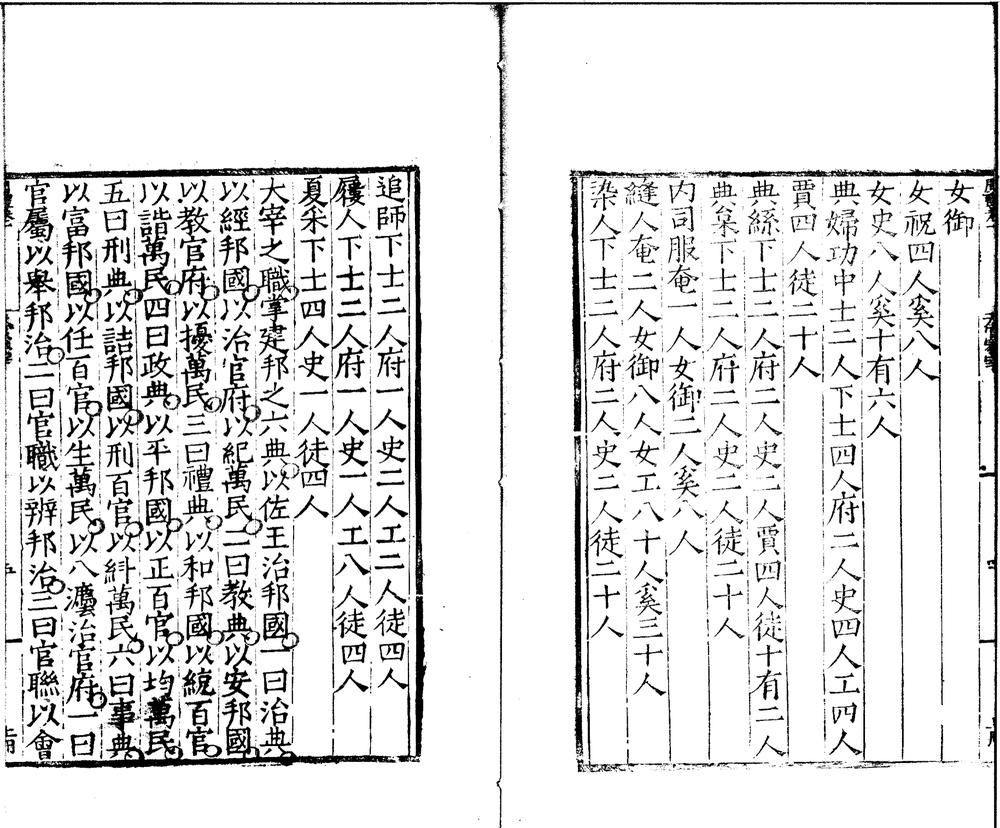 女御
女祝四人奚八人
女史八人奚十有六人
典婦功中士二人下士四人府二人史四人工四人
賈四人徒二十人
典絲下士二人府二人史二人賈四人徒十有二人
典枲下士二人府二人史二人徒二十人
内司服奄一人女御二人奚八人
縫人奄二人女御八人女工八十人奚三十人
染人下士二人府二人史二人徒二十人
追師下士二人府一人史二人工二人徒四人
屨人下士二人府一人史一人工八人徒四人
夏采下士四人史一人徒四人
大宰之職掌建邦之六典以佐王治邦國一曰治典
以經邦國以治官府以紀萬民二曰教典以安邦國
以教官府以擾萬民三曰禮典以和邦國以統百官
以諧萬民四曰政典以平邦國以正百官以均萬民
五曰刑典以詰邦國以刑百官以糾萬民六曰事典
以富邦國以任百官以生萬民以八灋治官府一曰
官屬以舉邦治二曰官職以辨邦治三曰官聯以會